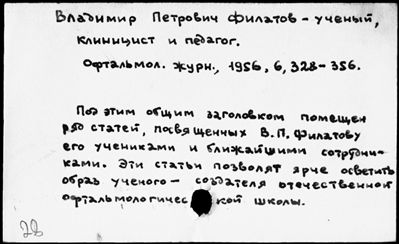 Владимир Петрович Филатов - ученый,
клиницист и педагог.
Офтальмол. журн., 1956, 6, 328-356.
Под этим общим заголовком помещен
ряд статей, посвященных В.П. Филатову
его учениками и ближайшими сотрудни-
ками. Эти статьи позволят ярче осветить
образ ученого - создателя отечественной
офтальмологичес кой школы.